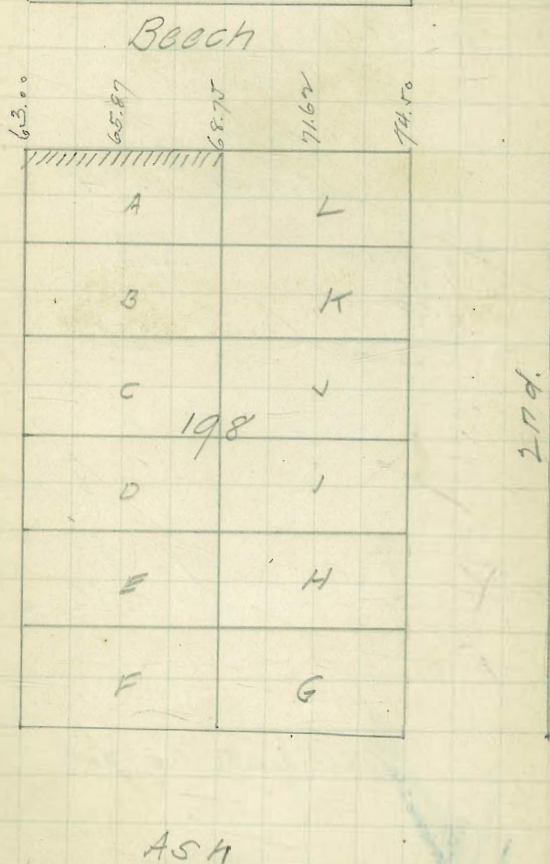 Beech
63.00 65.87 68.75 71.62 74.50
A L
B K
C J
198
D I
E H
F G
2nd.
ASH